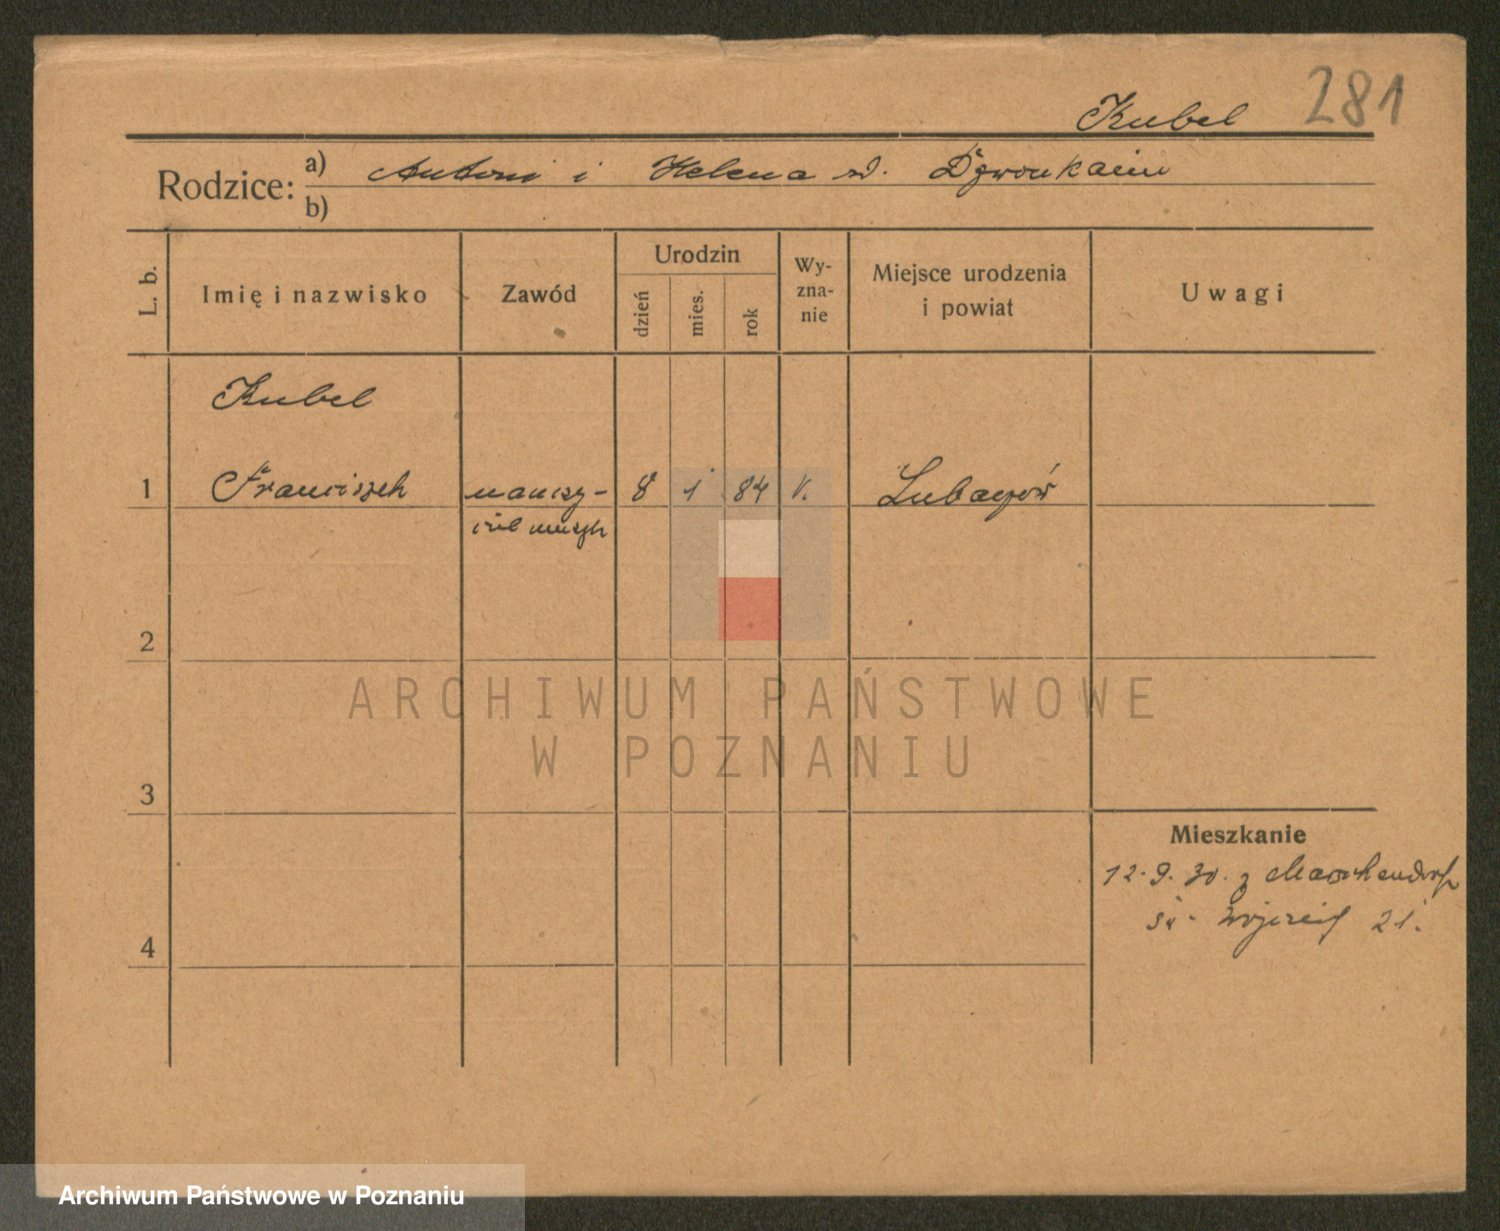 281
Kubel
Rodzice: a) Antoni i Helena
b)
L. b.
Imię i nazwisko
Zawód
Urodzin
dzień
mies.
rok
Wy-
zna-
nie
Miejsce urodzenia
i powiat
Uwagi
Kubel
1 Franciszek nauczy- 8 1 84
2
ARCHIWUM PAŃSTWOWE
W POZNANIU
3
Mieszkanie
12.9.30. z
św. Wojciech 21.
4
Archiwum Państwowe w Poznaniu